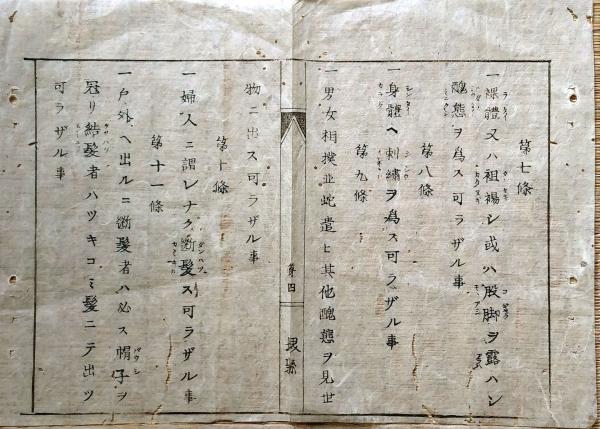 第七條
一裸體又ハ袒裼シ或ハ股脚ヲ露ハシ
醜態ヲ爲ス可ラザル事
第八條
一身體ヘ刺繍ヲ爲ス可ラザル事
第九條
一男女相撲並蛇遣ヒ其他醜態ヲ見世
第四
物ニ出ス可ラザル事
第十條
一婦人ニ謂レナク断髪ス可ラザル事
第十一條
一戸外ヘ出ルニ断髪者ハ必ス帽子ヲ
冠リ結髪者ハツキコミ髪ニテ出ツ
可ラザル事